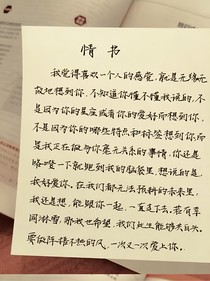 情书
我觉得喜欢一个人的感觉，就是无缘无
故地想到你，不知道你懂不懂我说的，不
是因为你的星座或者你的爱好而想到你，
不是因为你的哪些特点和标签想到你而
是我正在做与你毫无关系的事情，你还是
咯噔一下就跑到我的脑袋里，想说的是
我好爱你，在我们都无法预料的未来里，
我还是想，能跟你一起，一直走下去。若有幸
同淋雪，那我也希望，我们此生能够共白头。
要做阵猜不透的风，一次又一次爱上你。